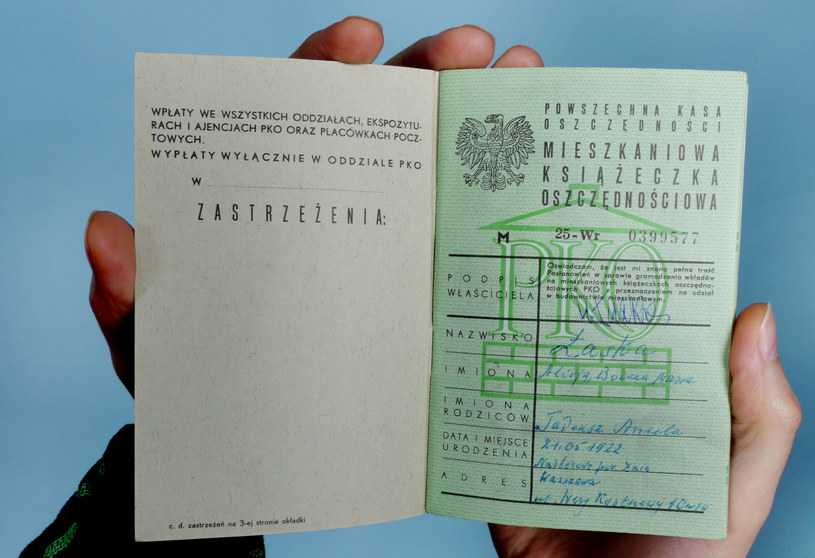 WPŁATY WE WSZYSTKICH ODDZIAŁACH, EKSPOZYTU-
RACH I AJENCJACH PKO ORAZ PLACÓWKACH POCZ-
TOWYCH.
WYPŁATY WYŁĄCZNIE W ODDZIALE PKO
W
ZASTRZEŻENIA:
c. d. zastrzeżeń na 3-ej stronie okładki
POWSZECHNA KASA
OSZCZĘDNOŚCI
MIESZKANIOWA
KSIĄŻECZKA
OSZCZĘDNOŚCIOWA
M 25-Wr 0399577
PKO
Oświadczam, że jest mi znana pełna treść
Postanowień w sprawie gromadzenia wkładów
na mieszkaniowych książeczkach oszczędno-
ściowych PKO z przeznaczeniem na udział
w budownictwie mieszkaniowym.
PODPIS
WŁAŚCICIELA
NAZWISKO Łaska
IMIONA Alicja, Bożena
IMIONA
RODZICÓW Tadeusz Aniela
DATA I MIEJSCE 21.05.1922
URODZENIA
ADRES Warszawa
ul.